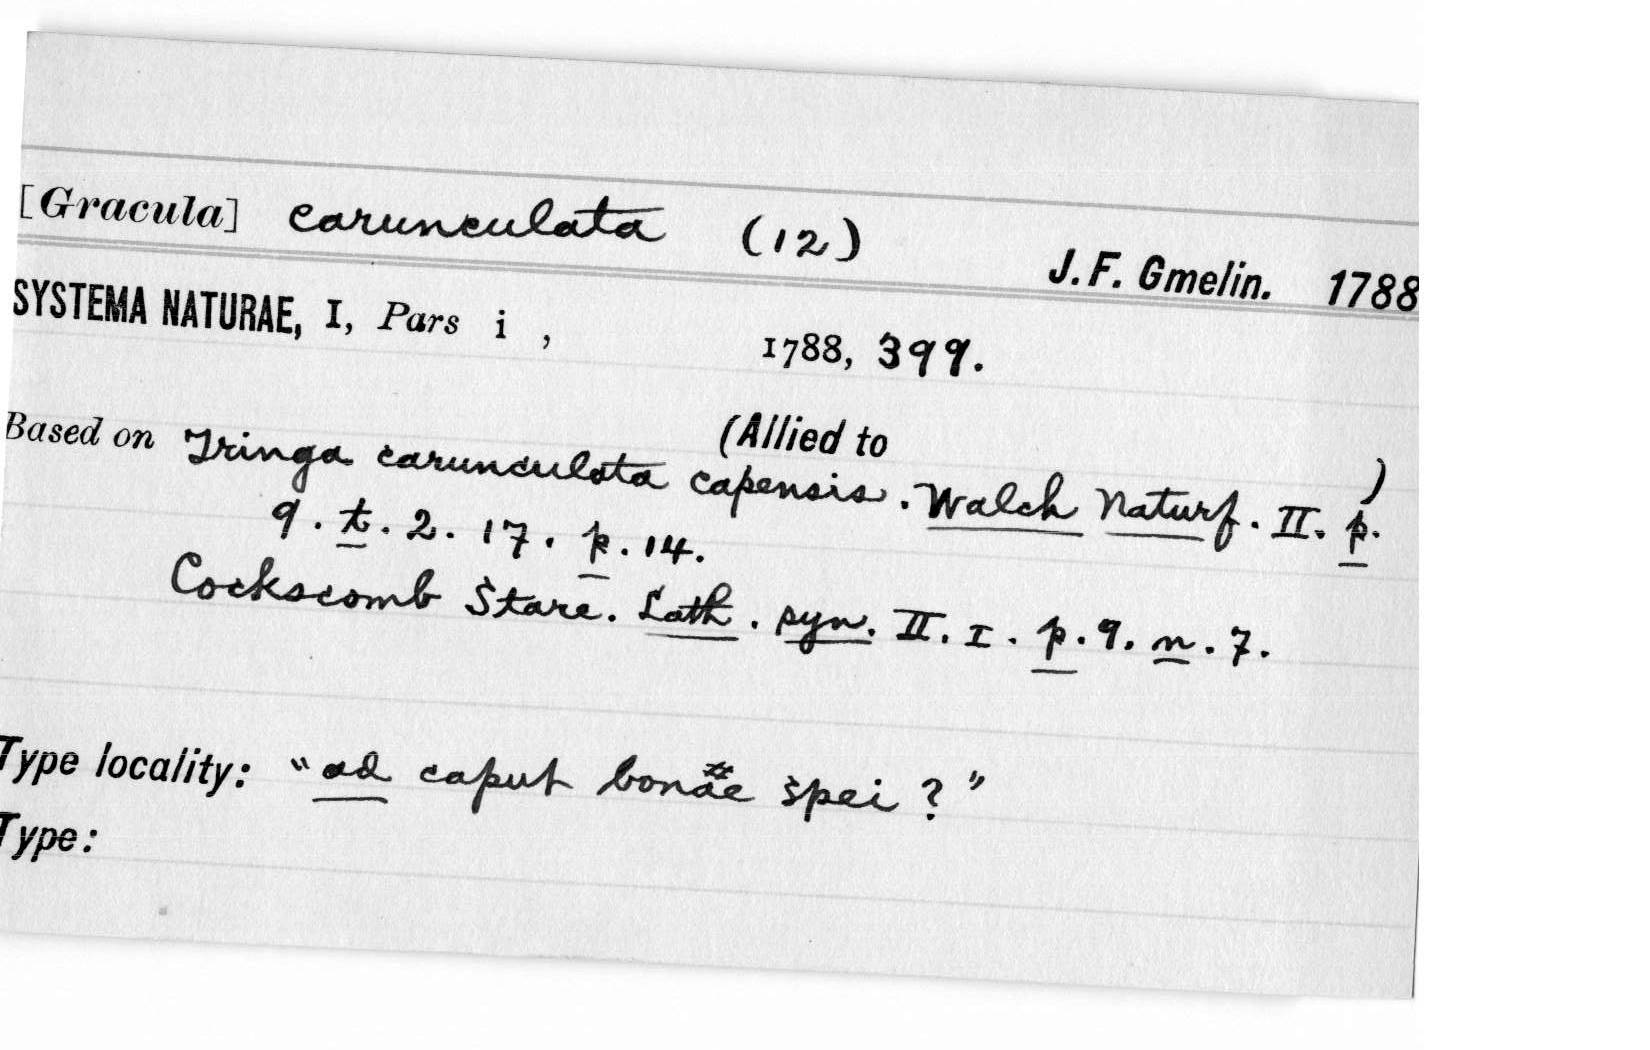 [Gracula] carunculata (12)
J. F. Gmelin. 1788
SYSTEMA NATURAE, I, Pars i , 1788, 399.
(Allied to )
Based on Tringa carunculata capensis. Walch Naturf. II. p.
9. t. 2. 17. p. 14.
Cockscomb Stare. Lath. syn. II. I. p. 9. n. 7.
Type locality: "ad caput bonae spei ?"
Type: